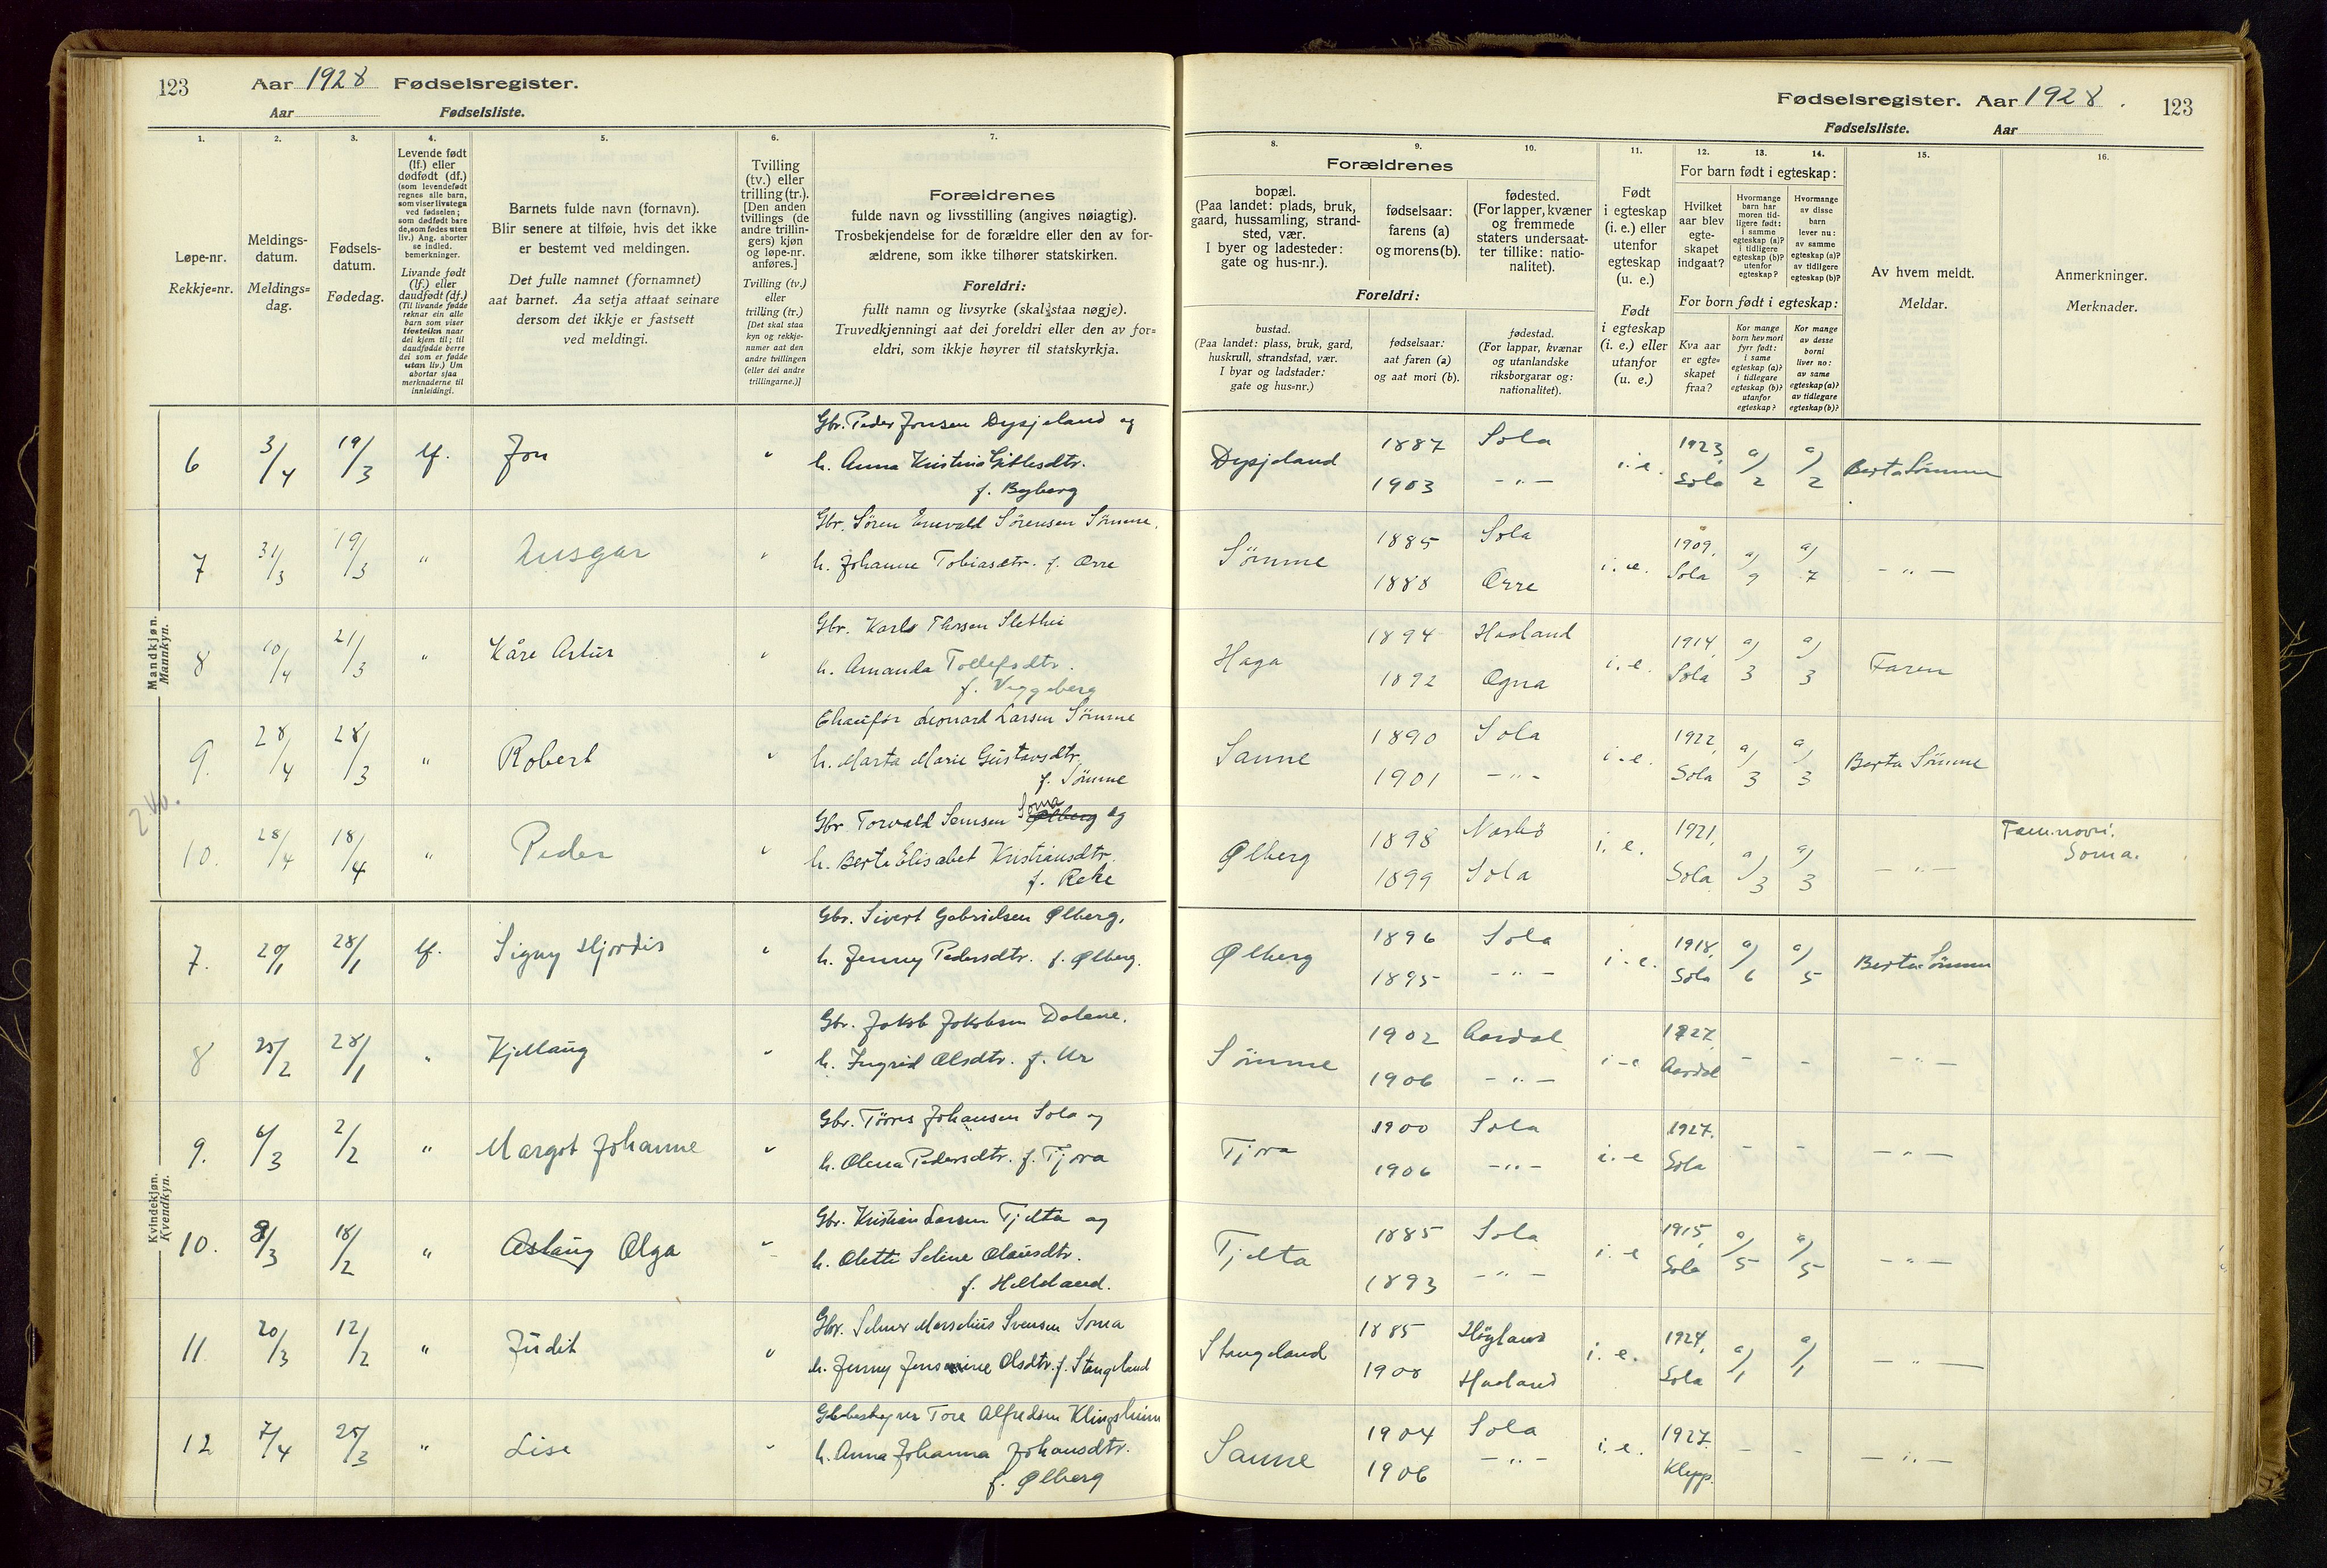 123 Aar 1928 Fødselsregister.
Aar Fødselsliste.
Fødselsregister. Aar 1928. 123
Fødselsliste. Aar
1.
2.
3.
4.
5.
6.
7.
Løpe-nr.
Rekkje=nr.
Meldings-
datum.
Meldings=
dag.
Fødsels-
datum.
Fødedag.
Levende født
(lf.) eller
dødfødt (df.)
(som levendefødt
regnes alle barn,
som viser livstegn
ved fødselen;
som dødfødt bare
de, som fødes uten
liv.) Ang. aborter
se indled.
bemerkninger.
Livande født
(lf.) eller
daudfødt (df.)
(Til livande fødde
reknar ein alle
barn som viser
livsteikn naar
dei kjem til; til
daudfødde berre
dei som er fødde
utan liv.) Um
abortar sjaa
merknaderne til
innleidingi.
Barnets fulde navn (fornavn).
Blir senere at tilføie, hvis det ikke
er bestemt ved meldingen.
Det fulle namnet (fornamnet)
aat barnet. Aa setja attaat seinare
dersom det ikkje er fastsett
ved meldingi.
Tvilling
(tv.) eller
trilling (tr.).
[Den anden
tvillings (de
andre trillin-
gers) kjøn
og løpe-nr.
anføres.]
Tvilling (tv.)
eller
trilling (tr.)
[Det skal staa
kyn og rekkje-
numer aat den
andre tvillingen
(eller dei andre
trillingarne.)]
Forældrenes
fulde navn og livsstilling (angives nøiagtig).
Trosbekjendelse for de forældre eller den av for-
ældrene, som ikke tilhører statskirken.
Foreldri:
fullt namn og livsyrke (skal staa nøgje).
Truvedkjenningi aat dei foreldri eller den av for=
eldri, som ikkje høyrer til statskyrkja.
8.
9.
10.
11.
12.
13.
14.
15.
16.
Forældrenes
bopæl.
(Paa landet: plads, bruk,
gaard, hussamling, strand-
sted, vær.
I byer og ladesteder:
gate og hus-nr.).
fødselsaar:
farens (a)
og morens (b).
fødested.
(For lapper, kvæner
og fremmede
staters undersaat-
ter tillike: natio-
nalitet).
Foreldri:
bustad.
(Paa landet: plass, bruk, gard,
huskrull, strandstad, vær.
I byar og ladstader:
gate og hus=nr.)
fødselsaar:
aat faren (a)
og aat mori (b).
fødestad.
(For lappar, kvænar
og utanlandske
riksborgarar og:
nationalitet).
Født
i egteskap
(i. e.) eller
utenfor
egteskap
(u. e.)
Født
i egteskap
(i. e.) eller
utanfor
(u. e.)
For barn født i egteskap:
Hvilket
aar blev
egte-
skapet
indgaat?
Hvormange
barn har
moren tid-
ligere født:
i samme
egteskap (a)?
i tidligere
egteskap (b)?
utenfor
egteskap?
Hvormange
av disse
barn
lever nu:
av samme
egteskap (a)?
av tidligere
egteskap (b)?
For born født i egteskap:
Kva aar
er egte=
skapet
fraa?
Kor mange
born hev mori
fyrr født:
i same
egteskap (a)?
i tidlegare
egteskap (b)?
utanfor
egteskap?
Kor mange
av desse
borni
liver no:
av same
egteskap (a)?
av tidlegare
egteskap (b)?
Av hvem meldt.
Meldar.
Anmerkninger.
Merknader.
Mandkjøn.
Mannkyn.
6 3/4 19/3 lf. Jon " Gbr. Peder Jonsen Dysjeland og
h. Anna Kristine Gitlesdtr.
f. Byberg
Dysjeland 1887 Sola i. e. 1923, a/2 a/2 Berta Sømme
1903 -"- Sola
7 31/3 19/3 " Ansgar " Gbr. Søren Enevald Sørensen Sømme.
h. Johanne Tobiasdtr. f. Orre
Sømme 1885 Sola i. e. 1909. a/9 a/7 -"-
1888 Orre Sola
8 10/4 21/3 " Kåre Artur " Gbr. Karls Thorsen Slethei
h. Amanda Tollefsdtr.
f. Veggeberg
Haga 1894 Haaland i. e. 1914, a/3 a/3 Faren
1892 Ogna Sola
9. 28/4 28/3 " Robert " Chaufør Leonard Larsen Sømme
h. Marta Marie Gustavsdtr.
f. Sømme
Sanne 1890 Sola i. e. 1922, a/3 a/3 Berta Sømme
1901 -"- Sola
10. 28/4 18/4 " Peder " Gbr Torvald Semsen Ølberg Soma og
h. Berta Elisabet Kristiansdtr.
f. Reke
Ølberg 1898 Nærbø i. e. 1921, a/3 a/3 -"- Fam.navn:
1899 Sola Sola Soma.
Kvindekjøn.
Kvendkyn.
7. 20/1 28/1 lf. Signy Hjørdis " Gbr. Sivert Gabrielsen Ølberg,
h. Jenny Pedersdtr. f. Ølberg.
Ølberg 1896 Sola i. e. 1918, a/6 a/5 Berta Sømme
1895 -"- Sola
8 25/2 28/1 " Kjellaug " Gbr. Jakob Jakobsen Dalene.
h. Ingrid Olsdtr. f. Ur
Sømme 1902 Aardal i-e 1927. - - -"-
1906 -"- Aardal
9. 6/3 2/2 " Margot Johanne " Gbr. Tørres Johansen Sola og
h. Olena Pedersdtr. f. Tjora
Tjora 1900 Sola i. e 1927. - - -"-
1906 -"- Sola
10. 9/3 18/2 " Aslaug Olga " Gbr. Kristian Larsen Tjelta og
h. Olette Seline Olausdtr.
f. Helleland.
Tjelta 1885 Sola i. e 1915, a/5 a/5 -"-
1893 -"- Sola
11 20/3 12/2 " Judit " Gbr. Selmer Marselius Svensen Soma
h. Jenny Jensmine Olsdtr. f. Stangeland
Stangeland 1885 Høyland i. e. 1924, a/1 a/1 -"-
1908 Haaland Sola
12 7/4 25/3 " Lise " Tore Alfredsen Klingsheim
h. Anna Johanna Johansdtr.
f. Ølberg
Sanne 1904 Sola i. e. 1927. - - -"-
1906 -"- Klepp.